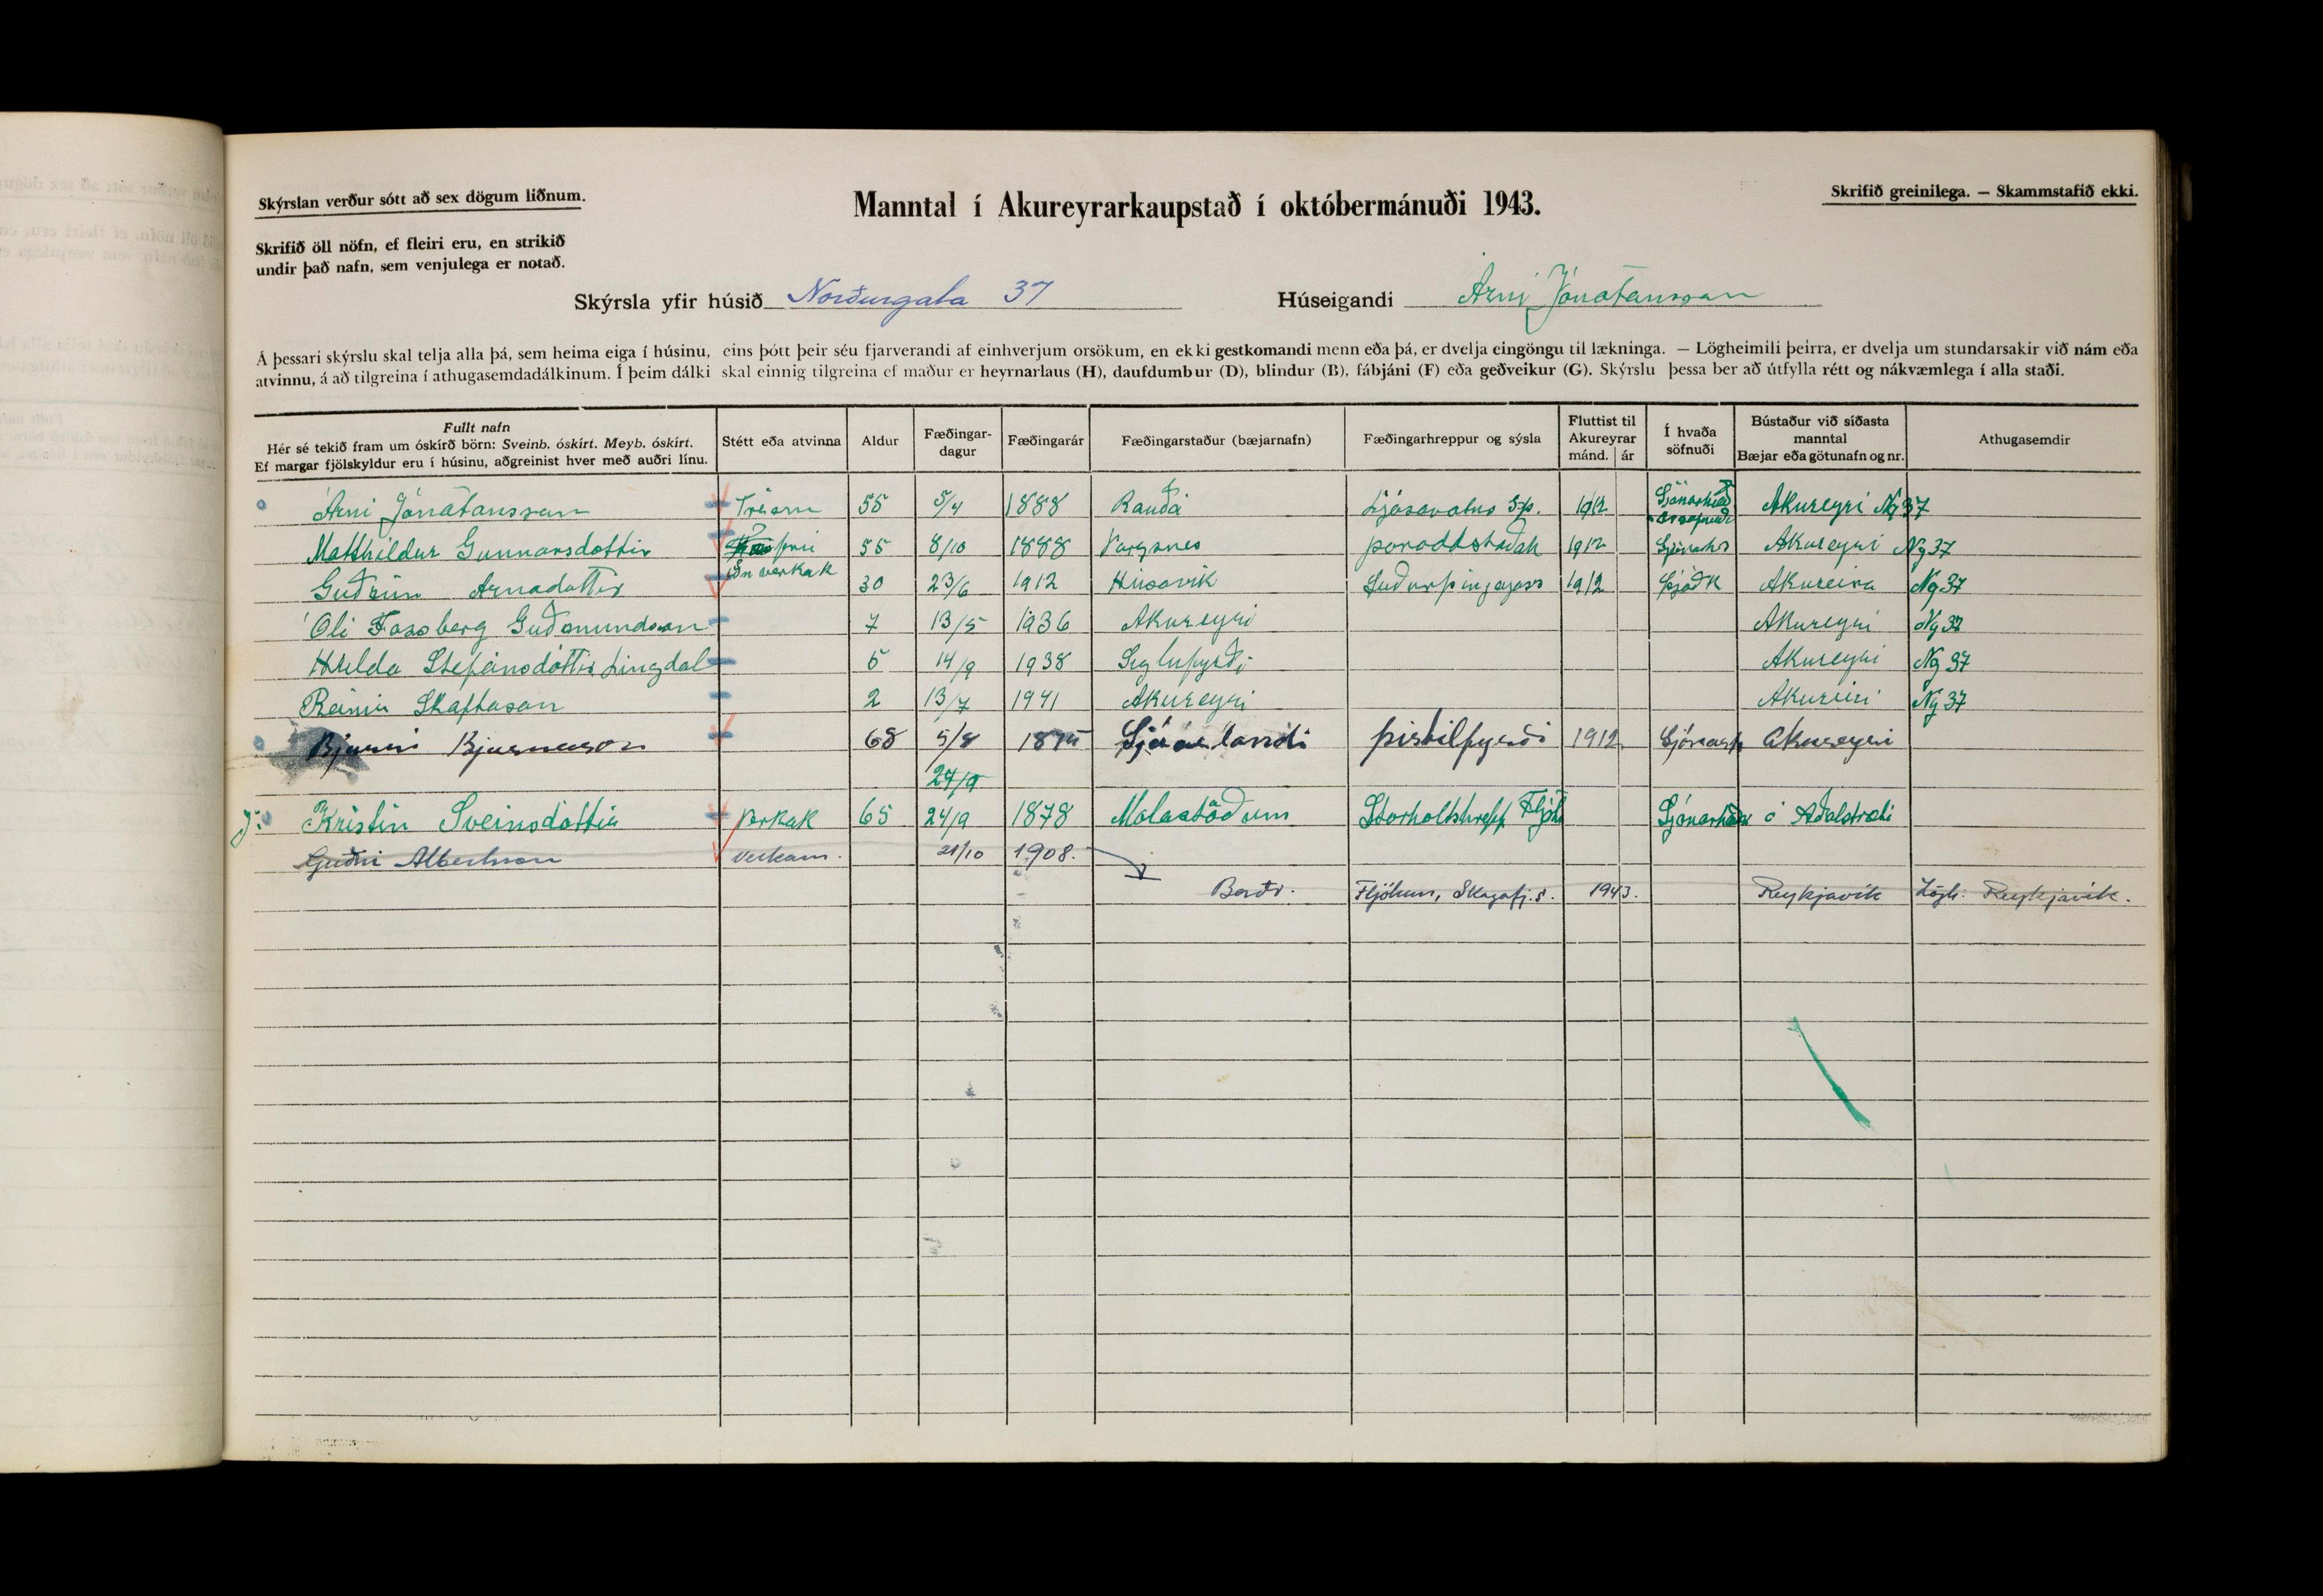 Skýrslan verður sótt að sex dögum liðnum.
Manntal í Akureyrarkaupstað í októbermánuði 1943.
Skrifið greinilega. — Skammstafið ekki.
Skrifið öll nöfn, ef fleiri eru, en strikið
undir það nafn, sem venjulega er notað.
Skýrsla yfir húsið Norðurgata 37 Húseigandi Árni Jónatansson
Á þessari skýrslu skal telja alla þá, sem heima eiga í húsinu, eins þótt þeir séu fjarverandi af einhverjum orsökum, en ekki gestkomandi menn eða þá, er dvelja eingöngu til lækninga. — Lögheimili þeirra, er dvelja um stundarsakir við nám eða
atvinnu, á að tilgreina í athugasemdadálkinum. Í þeim dálki skal einnig tilgreina ef maður er heyrnarlaus (H), daufdumbur (D), blindur (B), fábjáni (F) eða geðveikur (G). Skýrslu þessa ber að útfylla rétt og nákvæmlega í alla staði.
Fullt nafn
Hér sé tekið fram um óskírð börn: Sveinb. óskírt. Meyb. óskírt.
Ef margar fjölskyldur eru í húsinu, aðgreinist hver með auðri línu.
Stétt eða atvinna
Aldur
Fæðingar-
dagur
Fæðingarár
Fæðingarstaður (bæjarnafn)
Fæðingarhreppur og sýsla
Fluttist til
Akureyrar
mánd. ár
Í hvaða
söfnuði
Bústaður við síðasta
manntal
Bæjar eða götunafn og nr.
Athugasemdir
Árni Jónatansson Trésm 55 5/4 1888 Rauðá Ljósavatns 1912 Akureyri Ng 37
Matthildur Gunnarsdottir 55 8/10 1888 Vargsnes þoroddstaðah 1912 Akureyri Ng 37
Guðrún Arnadottir Iðn verkak 30 23/6 1912 Húsavik 1912 Þjóðk Akureira Ng 37
Óli Fossberg Guðmundsson 7 13/5 1936 Akureyri Akureyri Ng 37
Hulda Stefánsdóttir Lingdal 5 14/9 1938 Siglufyrði Akureyri Ng 37
Reinir Skaftason 2 13/7 1941 Akureyri Akureiri Ng 37
Bjarni Bjarnason 68 5/8 1875 þistilfyrði 1912 Akureyri
24/9
Kristin Sveinsdottir Verkak 65 24/9 1878 Molastöðum Storholtshrepp Fljót á Aðalstræti
Guðni Albertsson Verkam. 21/10 1908.
Fljótum, Skagafj.s. 1943. Reykjavík Lögh: Reykjavík.